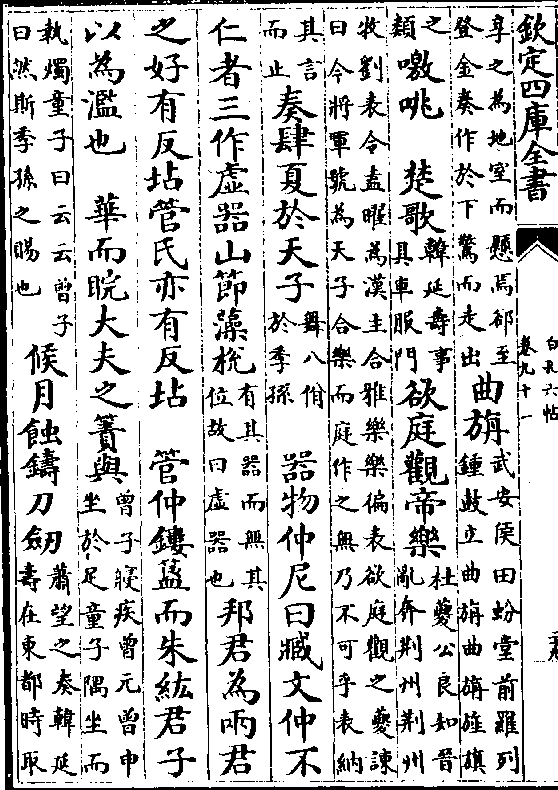 欽定四庫全書
白孔六帖
卷九十一
享之為地室而懸焉郤至登金奏作於下驚而走出 曲旃 武安侯田蚡堂前羅列鍾鼓立曲旃曲旃旌旗
之類 噭咷 楚歌 韓延壽事具車服門 欲庭觀帝樂 杜夔公良如晉亂奔荆州荆州
牧劉表令盍曜為漢主合雅樂樂徧表欲庭觀之夔諫曰今將軍號為天子合樂而庭作之無乃不可乎表納
其言而止 奏肆夏於天子 舞八佾於季孫 器物仲尼曰臧文仲不
仁者三作虛器山節藻梲 有其器而無其位故曰虛器也 邦君為兩君
之好有反坫管氏亦有反坫 管仲鏤簋而朱紘君子
以為濫也 華而睆大夫之簀與 曾子寢疾曾元曾申坐於足童子隅坐而
執燭童子曰云云曾子曰然斯季孫之賜也 候月蝕鑄刀劒 蕭望之奏韓延壽在東都時取